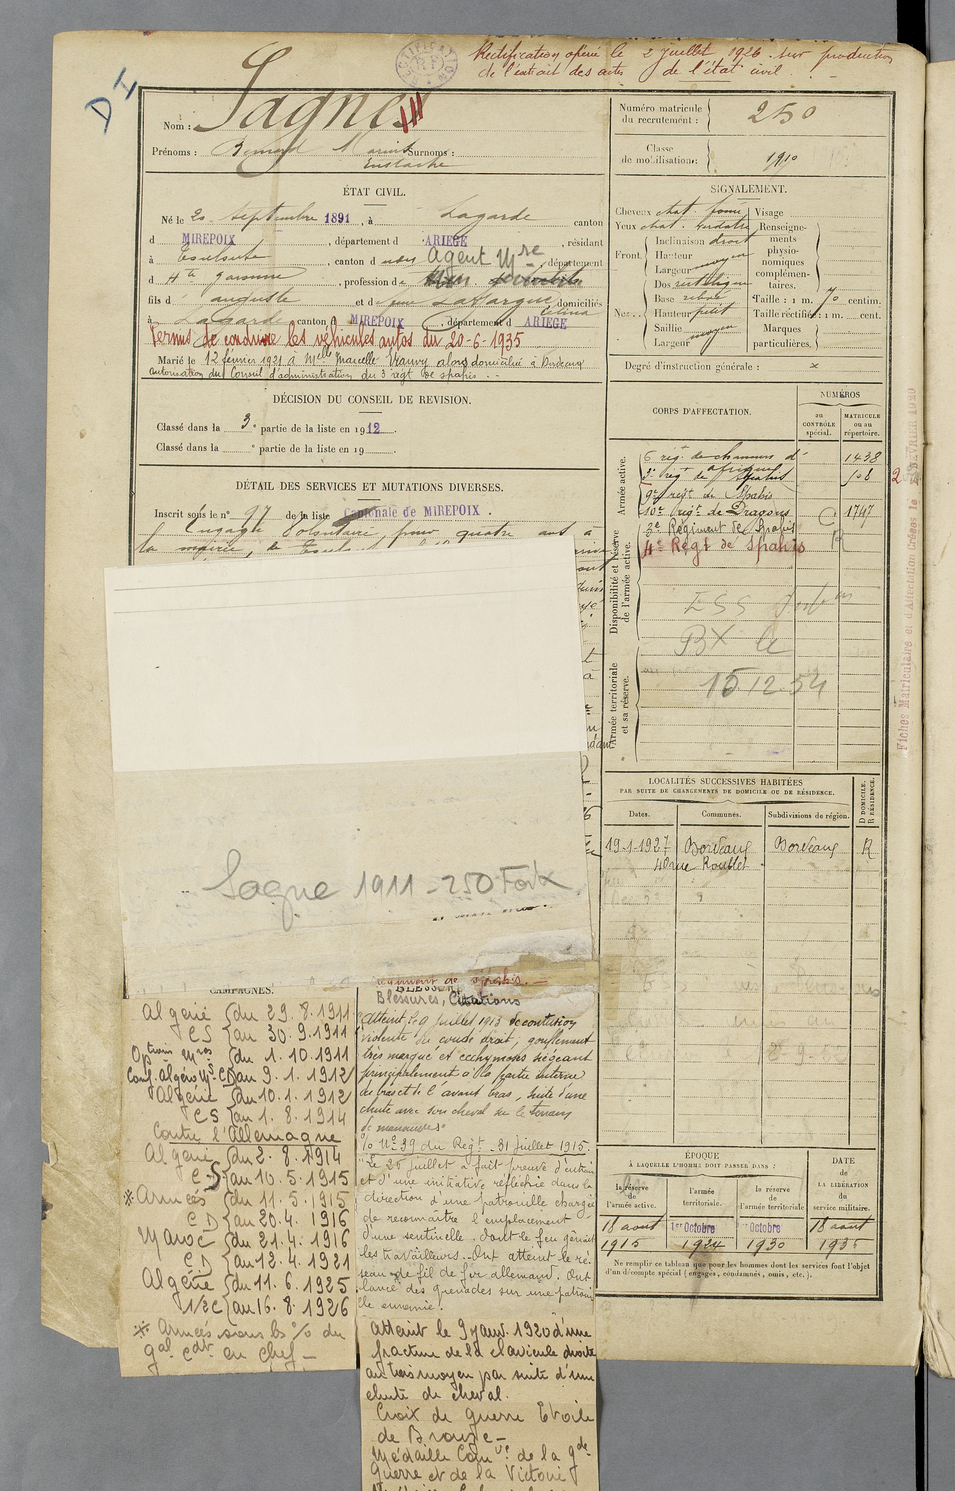 Rectification opéré le 2 Juillet 1926 sur production
de l'extrait des actes de l'état civil
D I
Nom : Sagne
Prénoms : Bernard Marius Surnoms :
Eustache
ÉTAT CIVIL.
Né le 20 septembre 1891, à Lagarde canton
d MIREPOIX, département d ARIEGE, résidant
à Toulouse, canton d udu, département
d Hte Garonne, profession de Agent Mre
fils d auguste et de Laffargue Célina domiciliés
à Lagarde canton d MIREPOIX, département d ARIEGE
Permis de conduire les véhicules autos du 20-6-1935
Marié le 12 février 1921 à Melle Marcelle Mauvy alors domiciliée à Bordeaux
Autorisation du Conseil d'administration du 3 regt de spahis
DÉCISION DU CONSEIL DE REVISION.
Classé dans la 3e partie de la liste en 1912.
Classé dans la e partie de la liste en 19 .
DÉTAIL DES SERVICES ET MUTATIONS DIVERSES.
Inscrit sous le n° 97 de la liste Cantonale de MIREPOIX.
Engagé Volontaire, pour quatre ans à
la mairie, de Toulouse
Sagne 1911 - 250 Foix
Numéro matricule
du recrutement : 250
Classe
de mobilisation : 1910
SIGNALEMENT.
Cheveux chat. foncé
Yeux chat. verdâtre
Front. Inclinaison droit
Hauteur
Largeur moyen
Nez. Dos rectiligne
Base relevé
Hauteur petit
Saillie
Largeur moyen
Visage
Renseignements
physionomiques
complémentaires.
Taille : 1 m. 70 centim.
Taille rectifiée : 1 m. cent.
Marques
particulières.
Degré d'instruction générale : x
CORPS D'AFFECTATION.
NUMÉROS
au
CONTRÔLE
spécial.
MATRICULE
ou au
répertoire.
Armée active.
6 régt de chasseurs d'afrique 1438
3e regt de Spahis 508
9e regt de Spahis
10e régt de Dragons C. 1747
Disponibilité et réserve
de l'armée active.
3e Régiment de Spahis
4e Régt de Spahis R
ESS
BX
15 12-54
Armée territoriale
et sa réserve.
Fiches Matriculaire et d'Affectation créées le 2 FÉVRIER 1920
LOCALITÉS SUCCESSIVES HABITÉES
PAR SUITE DE CHANGEMENTS DE DOMICILE OU DE RÉSIDENCE.
Dates. Communes. Subdivisions de région. D DOMICILE. R RÉSIDENCE.
19-1-1927 Bordeaux Bordeaux R
40 rue Roullet
ÉPOQUE
À LAQUELLE L'HOMME DOIT PASSER DANS :
la réserve
de
l'armée active.
l'armée
territoriale.
la réserve
de
l'armée territoriale
DATE
de
LA LIBÉRATION
du
service militaire.
18 aout 1er Octobre 1er Octobre 18 aout
1915 1924 1930 1935
Ne remplir ce tableau que pour les hommes dont les services font l'objet
d'un décompte spécial (engagés, condamnés, omis, etc.).
CAMPAGNES.
Algérie (du 29.8.1911
CS (au 30.9.1911
Optons Mres (du 1.10.1911
Conf. Algéro Ms CD au 9.1.1912
Algérie (du 10.1.1912
CS (au 1.8.1914
Contre l'Allemagne
Algérie (du 2.8.1914
C S (au 10.5.1915
※ Armées (du 11.5.1915
CD (au 20.4.1916
Maroc (du 21.4.1916
CD (au 12.4.1921
Algérie (du 11.6.1925
1/2 C (au 16.8.1926
※ Armées sous les % du
gal cdt en chef _
régiment de Spahis.
Blessures, Citations
Atteint le 9 Juillet 1913 de contusion
violente du coude droit, gonflement
très marqué et ecchymoses siégeant
principalement à la partie interne
du bras et de l'avant bras, suite d'une
chute avec son cheval sur le terrain
de manœuvres
% N° 39 du Régt 31 Juillet 1915.
"Le 26 juillet a fait preuve d'entrain
et d'une initiative réfléchie dans la
direction d'une patrouille chargée
de reconnaître l'emplacement
d'une sentinelle dont le feu gênait
les travailleurs. Ont atteint le ré-
seau de fil de fer allemand. Ont
lancé des grenades sur une patrouil
le ennemie.
Atteint le 9 janv. 1920 d'une
fracture de la clavicule droite
au tiers moyen par suite d'une
chute de cheval.
Croix de guerre Etoile
de Bronze _
Médaille Comve de la gde
Guerre et de la Victoire